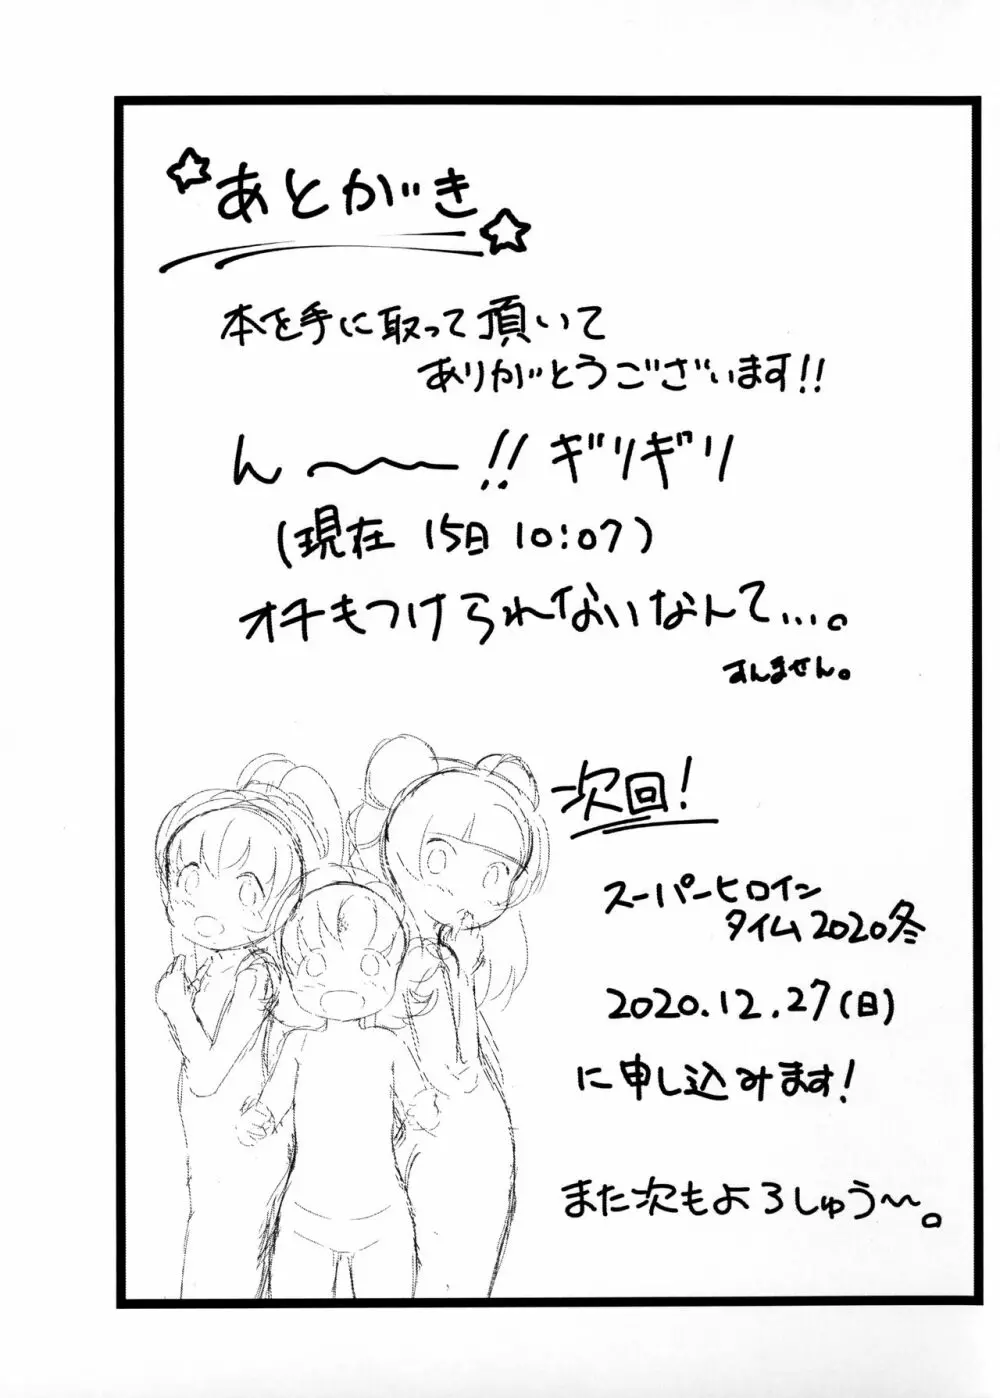 あとがき
本を手に取って頂いて
ありがとうございます!!
ん〜〜!!ギリギリ
(現在 15日 10:07)
オチもつけられないなんて...。
すんません。
次回!
スーパーヒロイン
タイム2020冬
2020.12.27(日)
に申し込みます!
また次もよろしゅう〜。